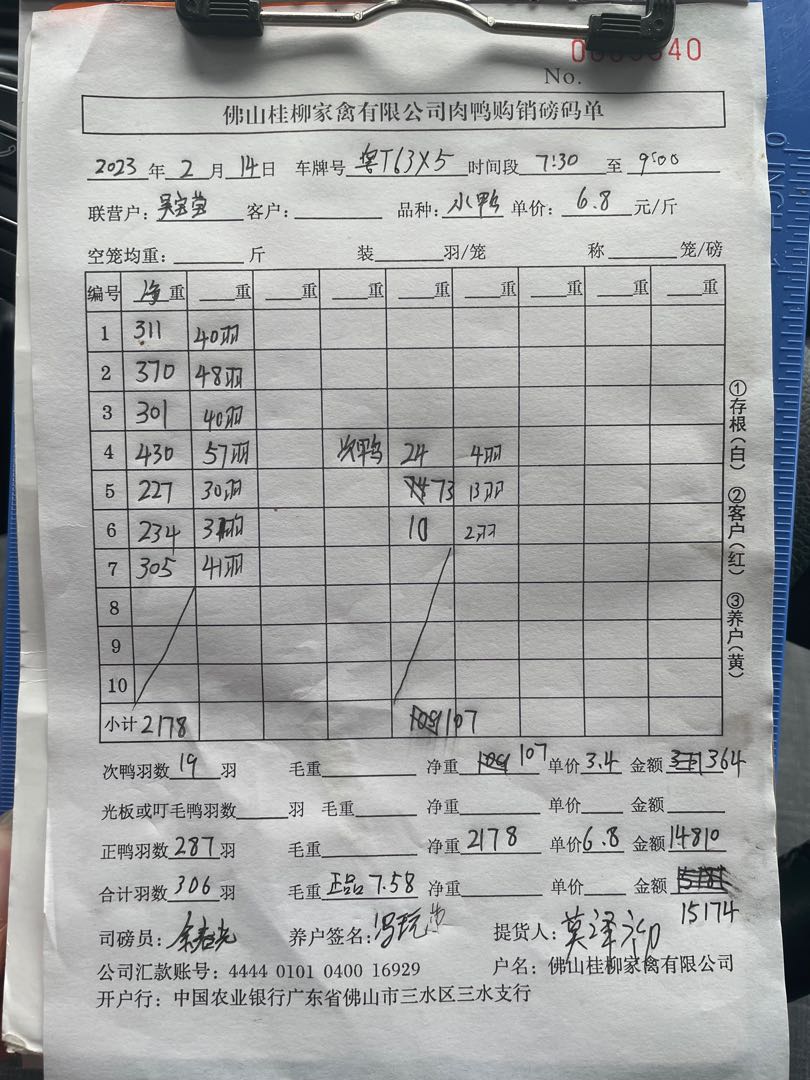 No. 0000340
佛山桂柳家禽有限公司肉鸭购销磅码单
2023 年 2 月 14 日 车牌号 粤T63X5 时间段 7:30 至 9:00
联营户: 客户: 品种: 水鸭 单价: 6.8 元/斤
空笼均重: 斤 装 羽/笼 称 笼/磅
编号 净重 重 重 重 重 重 重 重 重
1 311 40羽
2 370 48羽
3 301 40羽
4 430 57羽 次鸭 24 4羽
5 227 30羽 73 13羽
6 234 31羽 10 2羽
7 305 41羽
8
9
10
小计 2178 107
次鸭羽数 19 羽 毛重 净重 107 单价 3.4 金额 364
光板或叮毛鸭羽数 羽 毛重 净重 单价 金额
正鸭羽数 287 羽 毛重 净重 2178 单价 6.8 金额 14810
合计羽数 306 羽 毛重 正品 7.58 净重 单价 金额
15174
司磅员: 养户签名: 提货人:
公司汇款账号: 4444 0101 0400 16929 户名: 佛山桂柳家禽有限公司
开户行: 中国农业银行广东省佛山市三水区三水支行
①存根(白) ②客户(红) ③养户(黄)
0 INCH